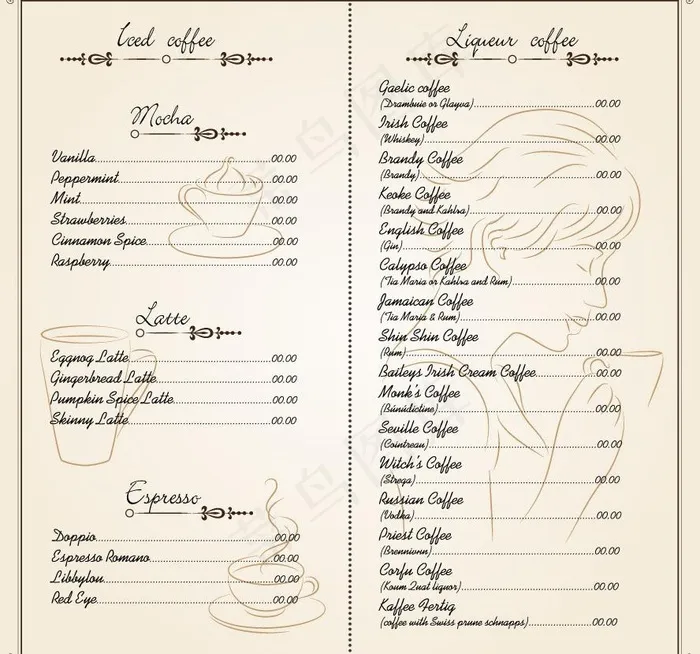 Iced coffee
Mocha
Vanilla 00.00
Peppermint 00.00
Mint 00.00
Strawberries 00.00
Cinnamon Spice 00.00
Raspberry 00.00
Latte
Eggnog Latte 00.00
Gingerbread Latte 00.00
Pumpkin Spice Latte 00.00
Skinny Latte 00.00
Espresso
Doppio 00.00
Espresso Romano 00.00
Libbylou 00.00
Red Eye 00.00
Liqueur coffee
Gaelic coffee
(Drambuie or Glayva) 00.00
Irish Coffee
(Whiskey) 00.00
Brandy Coffee
(Brandy) 00.00
Keoke Coffee
(Brandy and Kahlsa) 00.00
English Coffee
(Gin) 00.00
Calypso Coffee
(Tia Maria or Kahlsa and Rum) 00.00
Jamaican Coffee
(Tia Maria & Rum) 00.00
Shin Shin Coffee
(Rum) 00.00
Baileys Irish Cream Coffee 00.00
Monk's Coffee
(Búnúdictine) 00.00
Seville Coffee
(Cointreau) 00.00
Witch's Coffee
(Strega) 00.00
Russian Coffee
(Vodka) 00.00
Priest Coffee
(Brennivun) 00.00
Corfu Coffee
(Koum Quat liquor) 00.00
Kaffee Fertig
(coffee with Swiss prune schnapps) 00.00